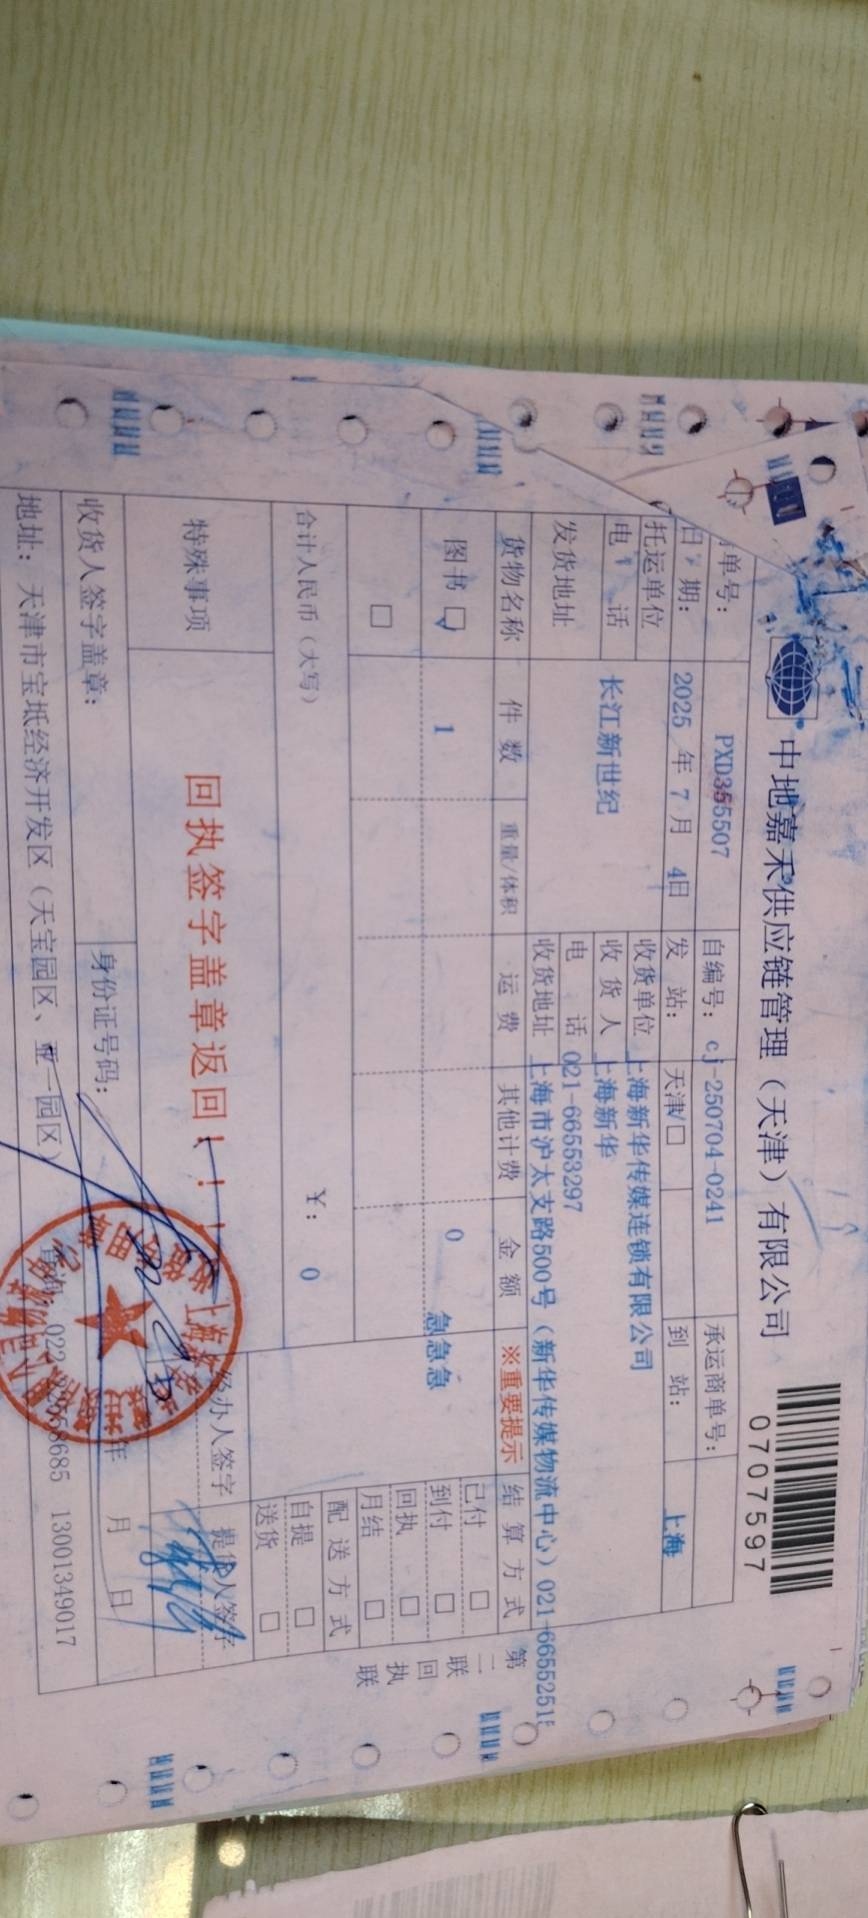 中地嘉禾供应链管理（天津）有限公司
0707597
单号： PXD355507 自编号： cj-250704-0241 承运商单号：
日 期： 2025 年 7 月 4日 发 站： 天津 □ 到 站： 上海
托运单位 长江新世纪 收货单位 上海新华传媒连锁有限公司
电 话 收 货 人 上海新华
电 话 021-66553297
发货地址 收货地址 上海市沪太支路500号（新华传媒物流中心）021-6655251
货物名称 件 数 重量/体积 运 费 其他计费 金 额 ※重要提示 结 算 方 式
图书 □ 1 0 急急急
已付 □
到付 □
回执 □
月结 □
□
合计人民币（大写） ￥： 0
配 送 方 式
自提 □
送货 □
特殊事项 回执签字盖章返回！！！
经办人签字 提货人签字
收货人签字盖章： 身份证号码： 年 月 日
地址：天津市宝坻经济开发区（天宝园区、亚一园区） 13001349017
第二联 回执联